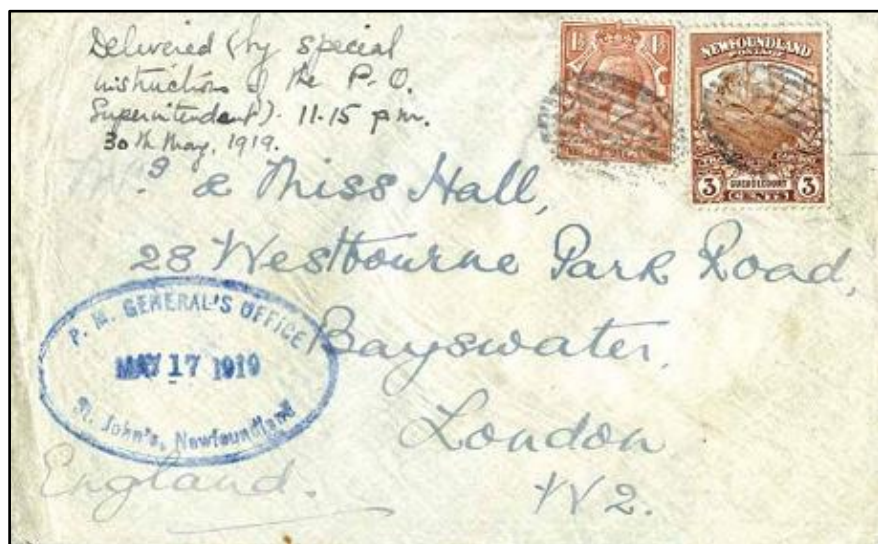 Delivered (by special
instructions of the P.O.
Superintendent). 11.15 p.m.
30th May, 1919.
1½ 1½
NEWFOUNDLAND
POSTAGE
GUEUDECOURT
3 CENTS 3
& Miss Hall,
28 Westbourne Park Road,
Bayswater,
London
W2.
England.
P. M. GENERAL'S OFFICE
MAY 17 1919
St. John's, Newfoundland